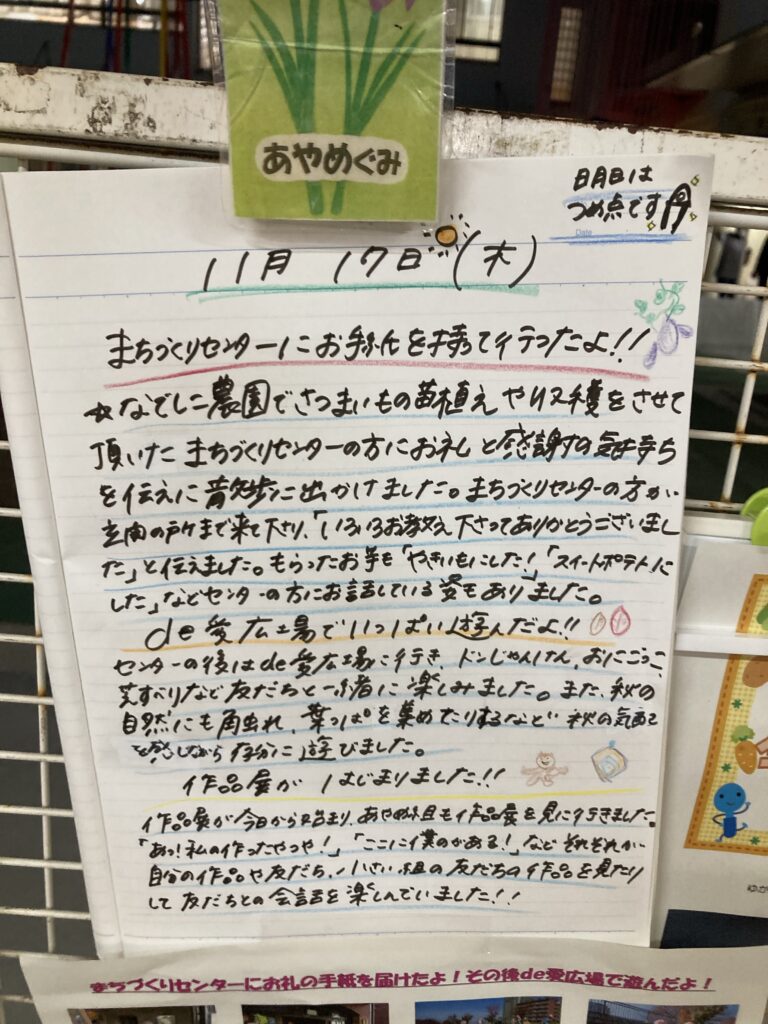 あやめぐみ
日月日は
つめ点です
Date
11月 17日 (木)
まちづくりセンターにお手紙を持って行ったよ!!
☆なでしこ農園でさつまいもの苗植えや収穫をさせて
頂いた まちづくりセンターの方にお礼と感謝の気持ち
を伝えに散歩に出かけました。まちづくりセンターの方が
玄関の戸所まで来て下さり、「いろいろお教え下さってありがとうございまし
た」と伝えました。もらったお芋も「やきいもにした!」「スイートポテトに
した」などセンターの方にお話している姿もありました。
de愛広場でいっぱい遊んだよ!!
センターの後はde愛広場に行き、ドンじゃんけん、おにごっこ、
芝すべりなど友だちと一緒に楽しみました。また、秋の
自然にも触れ、葉っぱを集めたりするなど秋の気配
を感じながら存分に遊びました。
作品展がはじまりました!!
作品展が今日から始まり、あやめ組も作品展を見に行きました。
「あっ!私の作ったやつや!」「ここに僕のがある!」などそれぞれが
自分の作品や友だち、小さい組の友だちの作品を見たり
して友だちとの会話を楽しんでいました!!
まちづくりセンターにお礼の手紙を届けたよ！その後de愛広場で遊んだよ！